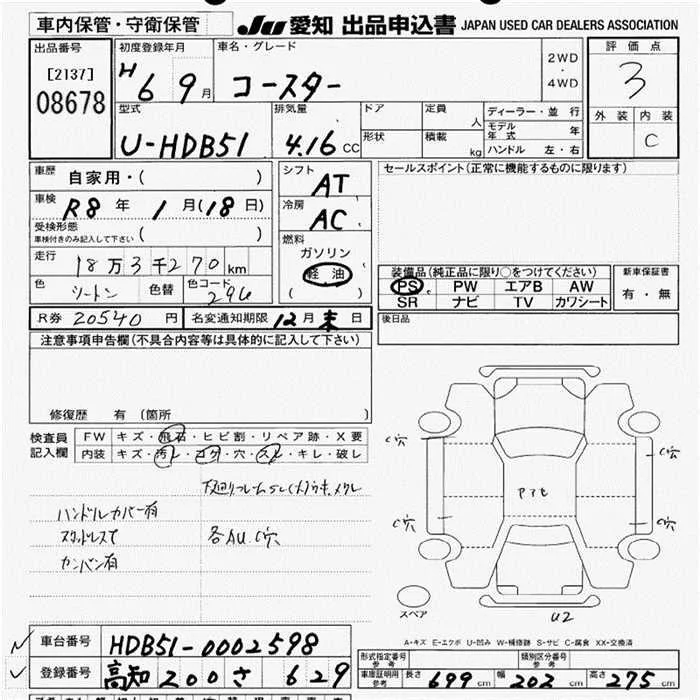 車内保管・守衛保管
JU 愛知 出品申込書 JAPAN USED CAR DEALERS ASSOCIATION
出品番号
[2137]
08678
初度登録年月
H6 9月
車名・グレード
コースター
2WD
・
4WD
評価点
3
外装 内装
C
型式
U-HDB51
排気量
4.16 CC
ドア
形状
定員
人
積載
kg
ディーラー・並行
モデル年式 年
ハンドル 左・右
車歴
自家用・( )
車検
R8年 1月(18日)
受検形態
車検付きのみ記入して下さい ( )
走行
18万3千270 km
色
ツートン
色替
色コード
296
シフト
AT
冷房
AC
燃料
ガソリン
軽油
( )
セールスポイント(正常に機能するものに限ります)
装備品(純正品に限り○をつけてください)
PS PW エアB AW
SR ナビ TV カワシート
新車保証書
有・無
R券 20540 円
名変通知期限 12月末日
後日品
注意事項申告欄(不具合内容等は具体的に記入して下さい)
修復歴 有(箇所 )
検査員
記入欄
FW キズ・飛石・ヒビ割・リペア跡・X要
内装 キズ・汚レ・コゲ・穴・スレ・キレ・破レ
ハンドルカバー有
スタッドレスて
カンバン有
各AU.C穴
C穴
C穴
C穴
C穴
スペア
U2
A-キズ E-エクボ U-凹み W-補修跡 S-サビ C-腐食 XX-交換済
車台番号 HDB51-0002598
登録番号 高知 200 さ 629
形式指定番号
参考
類別区分番号
参考
車庫証明用
参考
長さ 699 cm 幅 202 cm 高さ 275 cm